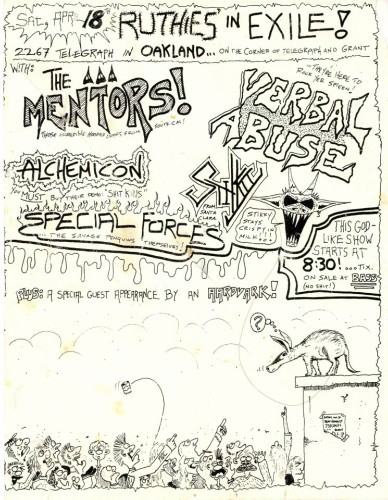 SAT, APR 18th "RUTHIES" IN EXILE!
2267 TELEGRAPH IN OAKLAND... ON THE CORNER OF TELEGRAPH AND GRANT
WITH:
THE MENTORS!
THOSE INCREDIBLE HOODED FROM SOUTH CAL!
"THEY'RE HERE TO ROCK YER SPLEEN!"
VERBAL ABUSE
ALCHEMICON
MUST BUY THEIR DEMO: SHIT KILLS
STIKKY
FROM SANTA CLARA
STIKKY STAYS CRISPY IN MILK!
SPECIAL FORCES
... THE SAVAGE THEMSELVES!
THIS GOD-
LIKE SHOW
STARTS AT
8:30! ...TIX.
ON SALE AT BASS
(NO SHIT!)
PLUS: A SPECIAL GUEST APPEARANCE BY AN AARDVARK!
?